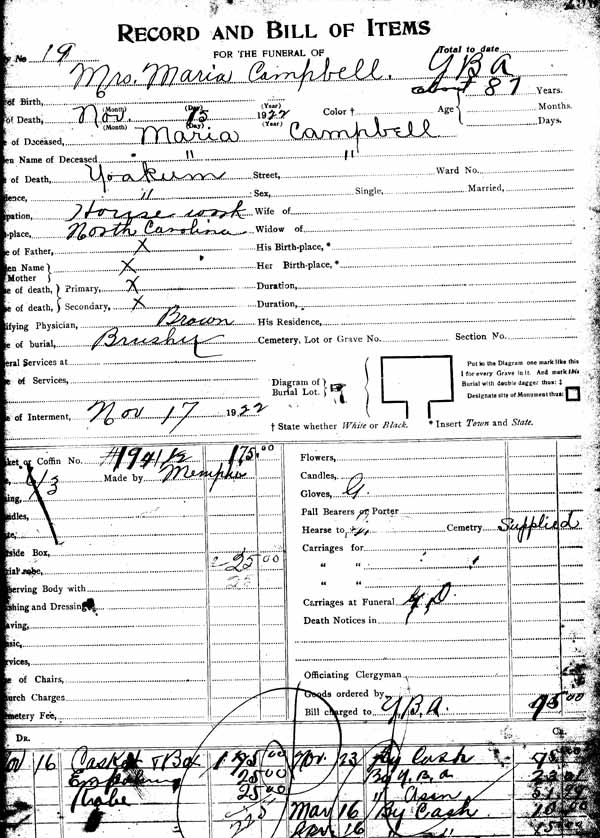 RECORD AND BILL OF ITEMS
No 19 FOR THE FUNERAL OF Total to date
Mrs. Maria Campbell. Y B A
of Birth, about 87 Years.
(Month) (Day) (Year) Color † Age Months.
of Death, Nov. 15 1922 Days.
(Month) (Day) (Year)
of Deceased, Maria Campbell
en Name of Deceased " "
of Death, Yoakum Street, Ward No.
ence, " Sex, Single, Married,
pation, House work Wife of
-place, North Carolina Widow of
of Father, X His Birth-place, *
en Name Mother X Her Birth-place, *
e of death, Primary, X Duration,
e of death, Secondary, X Duration,
ifying Physician, Brown His Residence,
e of burial, Brushy Cemetery, Lot or Grave No. Section No.
eral Services at
e of Services,
Diagram of Burial Lot.
Put in the Diagram one mark like this
I for every Grave in it. And mark this
Burial with double dagger thus: ‡
Designate site of Monument thus:
e of Interment, Nov 17 1922
† State whether White or Black. * Insert Town and State.
ket or Coffin No. 175.00 Flowers,
Made by Memphis Candles,
ing, Gloves, G.
dles, Pall Bearers or Porter
Hearse to Cemetry Supplied
side Box, Carriages for
ial robe, 25 00 " "
erving Body with 25 " "
shing and Dressing Carriages at Funeral
aving, Death Notices in
sic,
rvices,
e of Chairs, Officiating Clergyman
urch Charges Goods ordered by
metery Fee, Bill charged to Y.B.A. 75 00
DR. CR.
Nov 16 Casket & Box 175 00 Nov. 23 By Cash 75 00
25 00 Y. B. A
Robe 25 00 "
225 Mar 16 By Cash 10 00
Apr. 16 "